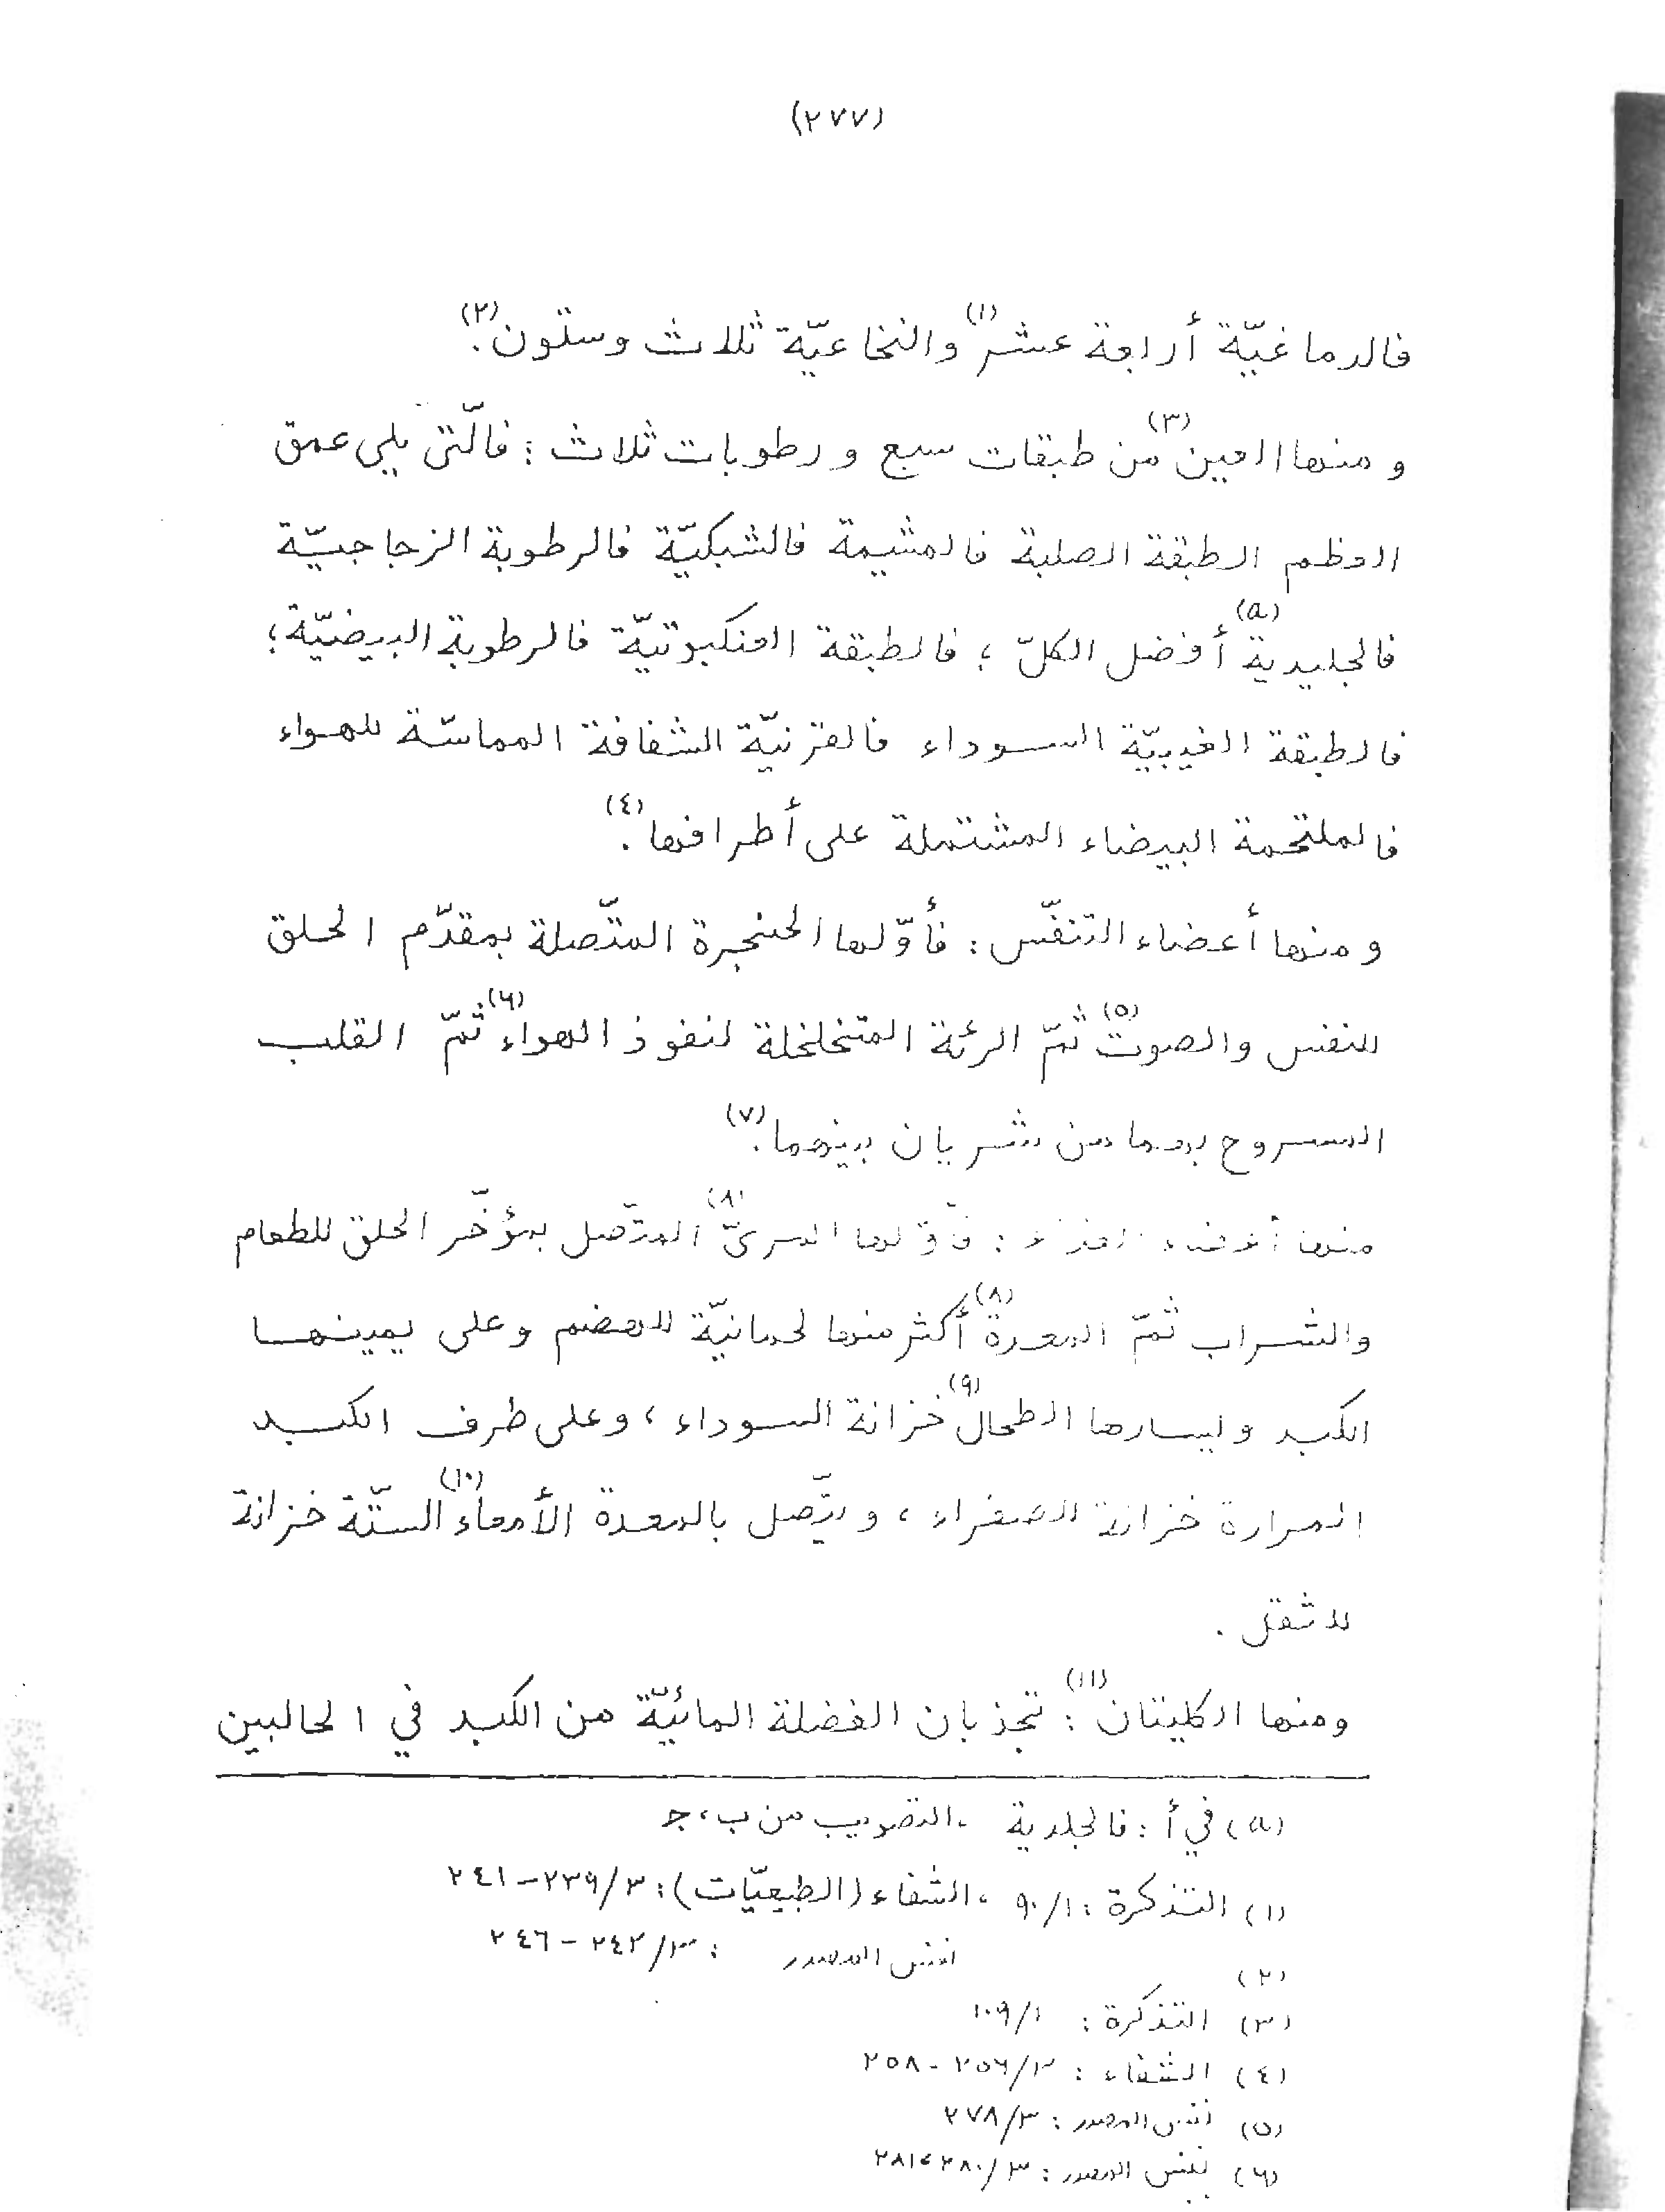 (٢٧٧)
فالدماغيّة أرابعة عشر(١) والنخاعيّة ثلاث وستّون(٢).
ومنها العين(٣) من طبقات سبع ورطوبات ثلاث : فالّتى يلي عمق
العظم الطبقة الصلبة فالمشيمة فالشبكيّة فالرطوبة الزجاجيّة
فالجليدية(a) أفضل الكلّ ؛ فالطبقة العنكبوتيّة فالرطوبة البيضيّة ؛
فالطبقة الغيبيّة السوداء فالقرنيّة الشفافة المماسّة للهواء
فالملتحمة البيضاء المشتملة على أطرافها(٤).
ومنها أعضاء التنفّس : فأوّلها الحنجرة المتّصلة بمقدّم الحلق
للنفس والصوت(٥) ثمّ الرئة المتخلخلة لنفوذ الهواء(٦) ثمّ القلب
المسروح بهما من شريان بينهما(٧).
منها أعضاء الغذاء : فأوّلها المريّ(٨) المتّصل بمؤخّر الحلق للطعام
والشراب ثمّ المعدة(٨) أكثر منها لحمانيّة للهضم وعلى يمينها
الكبد وليسارها الطحال(٩) خزانة السوداء ، وعلى طرف الكبد
المرارة خزانة الصفراء ، ويتّصل بالمعدة الأمعاء(١٠) الستّة خزانة
للثقل .
ومنها الكليتان(١١) : تجذبان الفضلة المائيّة من الكبد في الحالبين
(a) في أ : فالجلدية ، التصويب من ب ، ج
(١) التذكرة : ٩٠/١ ، الشفاء (الطبيعيّات) : ٢٣٩/٣ - ٢٤١
(٢) نفس المصدر : ٢٤٢/٣ - ٢٤٦
(٣) التذكرة : ١٠٩/١
(٤) الشفاء : ٢٥٦/٣ - ٢٥٨
(٥) نفس المصدر : ٢٧٨/٣
(٦) نفس المصدر : ٢٨٠/٣ ، ٢٨١